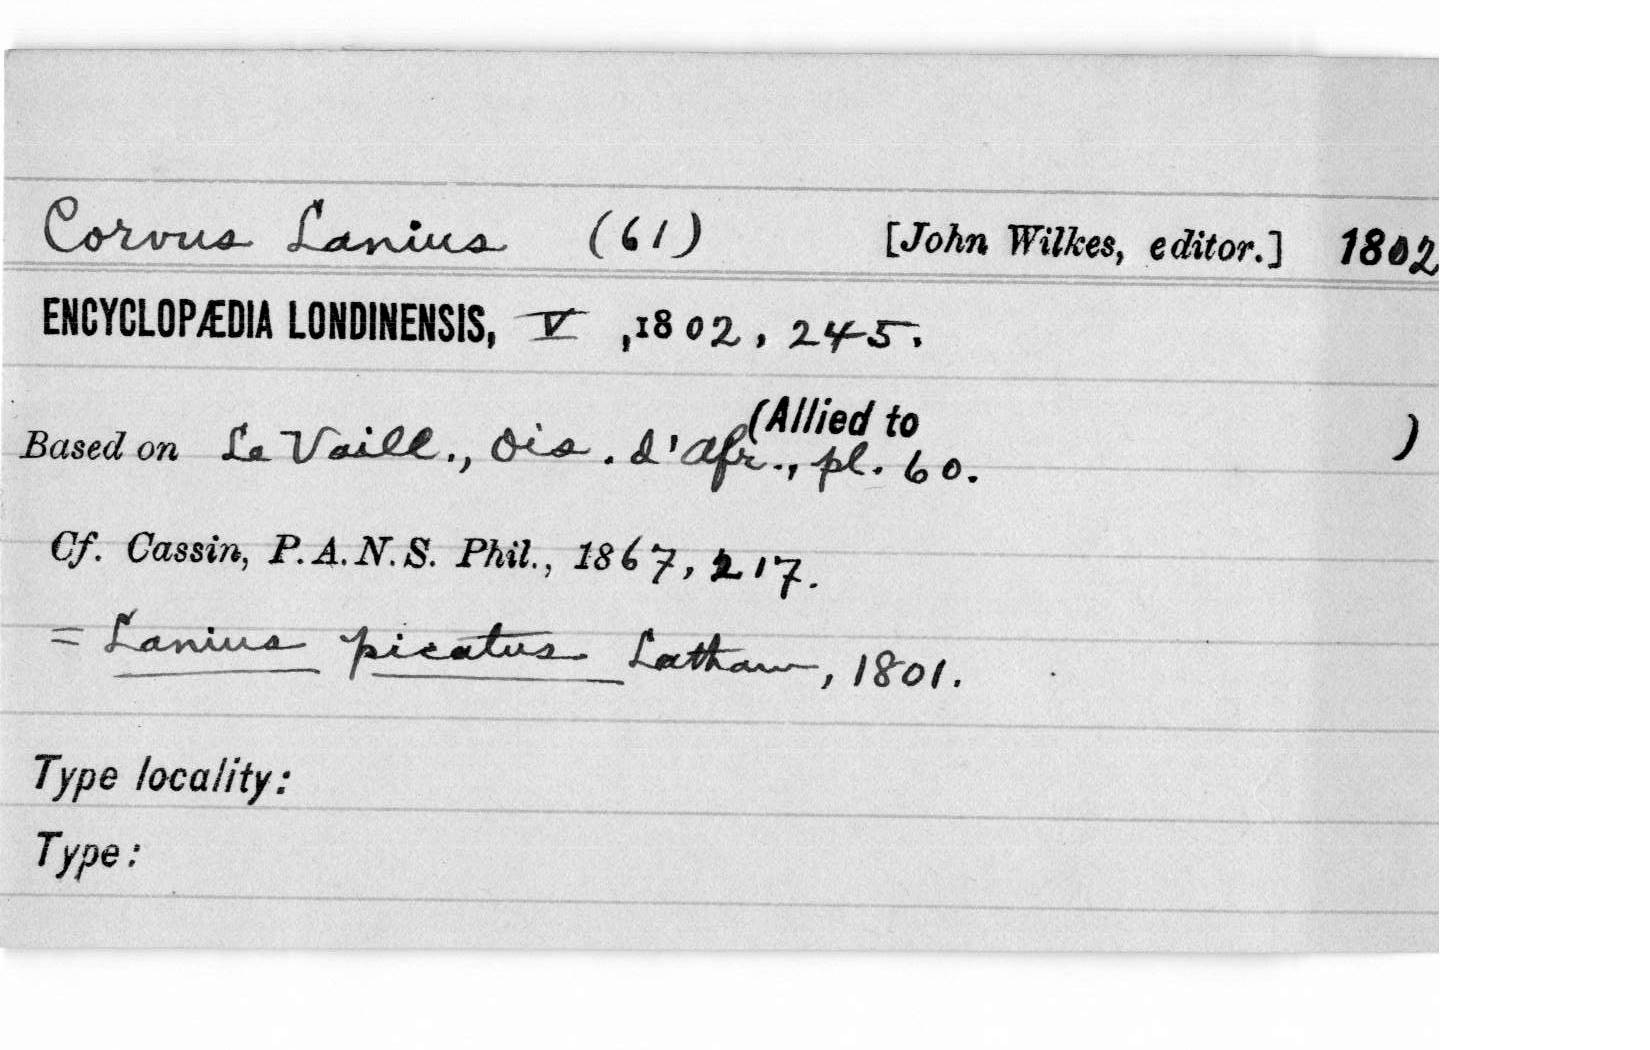 Corvus Lanius (61) [John Wilkes, editor.] 1802
ENCYCLOPÆDIA LONDINENSIS, V ,1802, 245.
(Allied to )
Based on Le Vaill., Ois. d'Afr., pl. 60.
Cf. Cassin, P.A.N.S. Phil., 1867, 217.
= Lanius picatus Latham, 1801.
Type locality:
Type: